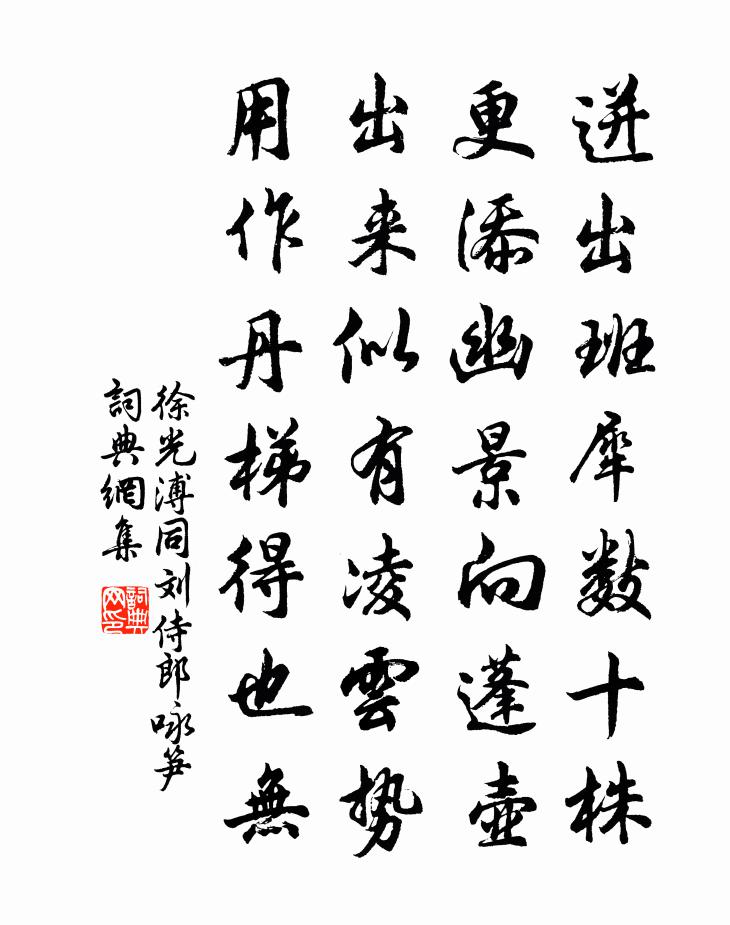 迸出班犀数十株
更添幽景向蓬壺
出来似有凌雲势
用作丹梯得也無
徐光溥同刘侍郎咏笋
詞典網集
詞典网印